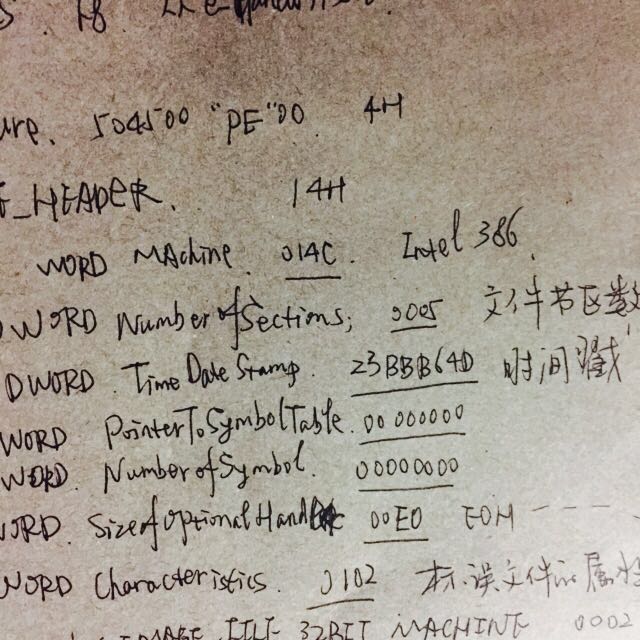 ure. 504500 "PE"00. 4H
F_HEADER. 14H
WORD Machine. 014C. Intel 386.
WORD NumberofSections; 0005 文件节区数
DWORD. TimeDateStamp. 23BBB64D 时间戳
WORD PointerToSymbolTable. 00000000
WORD. NumberofSymbol. 00000000
WORD. SizeofOptional 00E0 E0H ----
WORD Characteristics. 0102 标误文件的属性
IMAGE_FILE_32BIT_MACHINE 0002